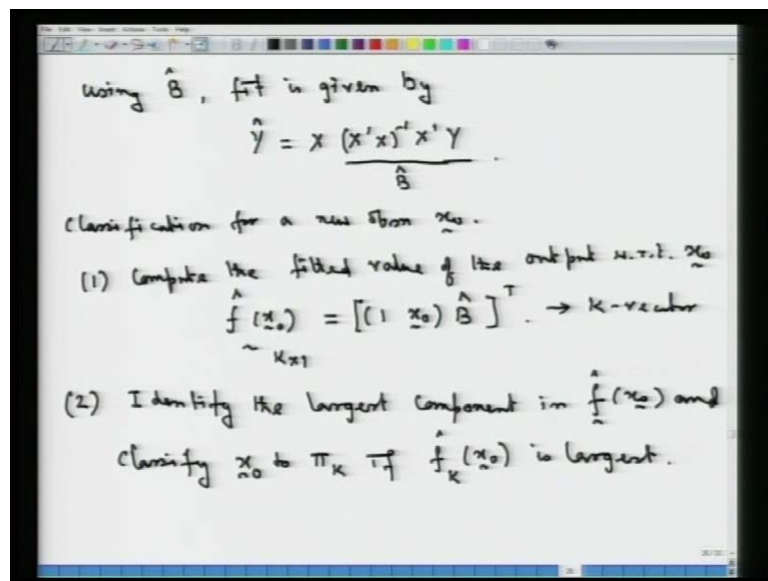 using B̂, fit is given by
Ŷ = X (X'X)⁻¹ X' Y
B̂
Classification for a new obsn x₀.
(1) Compute the fitted value of the output w.r.t. x₀
f̂ (x₀) = [(1 x₀) B̂]ᵀ. → K-vector
K×1
(2) Identify the largest component in f̂(x₀) and
classify x₀ to π_K if f̂_K(x₀) is largest.